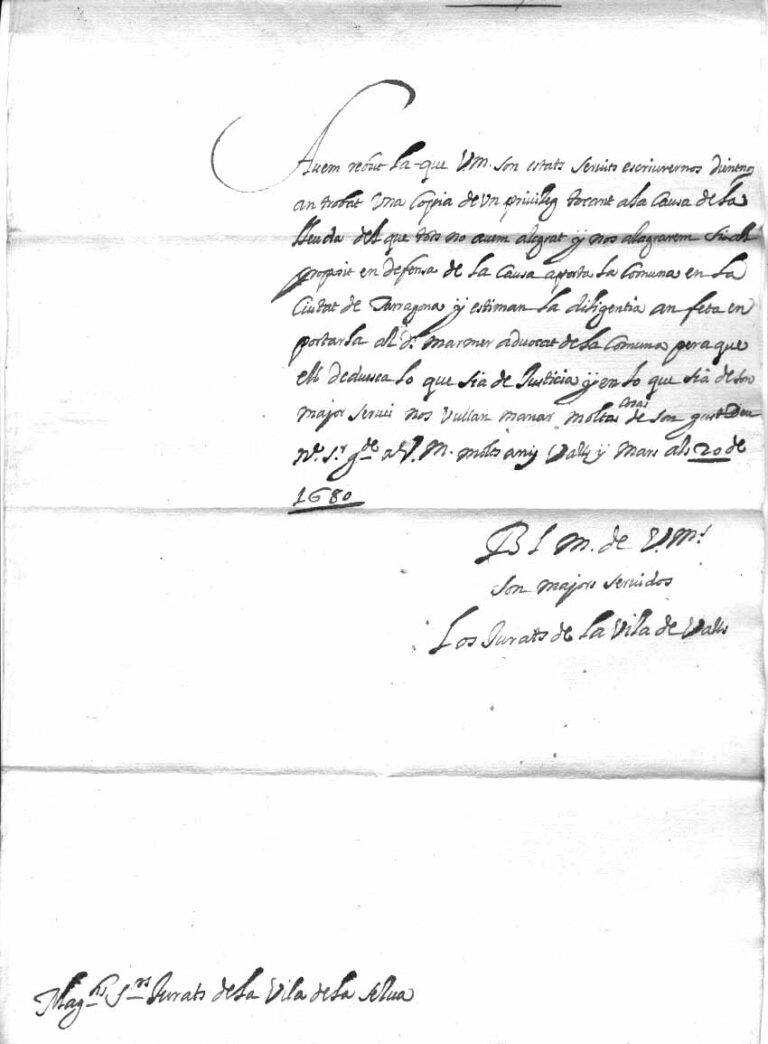 Auem rebut la que V.M. son estats seruits escriurernos dientnos
an trobat Una Copia de Vn priuileg tocant a la Causa de la
lleuda del que tots no auem alegrat y nos alagrarem sia al
proposit en defensa de la Causa aporta la Comuna en la
Ciutat de Tarragona y estiman la diligentia an feta en
portarla al d.r marmer aduocat de la Comuna pera que
ell dedussea lo que sia de Justicia y en lo que sia de son
major serui nos vullan manar moltas Cosas de son gust Deu
N.e S.r g.de a V.M. molts anys Valls y Mars als 20 de
1680
B L M. de V.M.s
son majors seruidos
Los Jurats de la Vila de Valls
Mag.chs S.rs Jurats de la Vila de la Selua